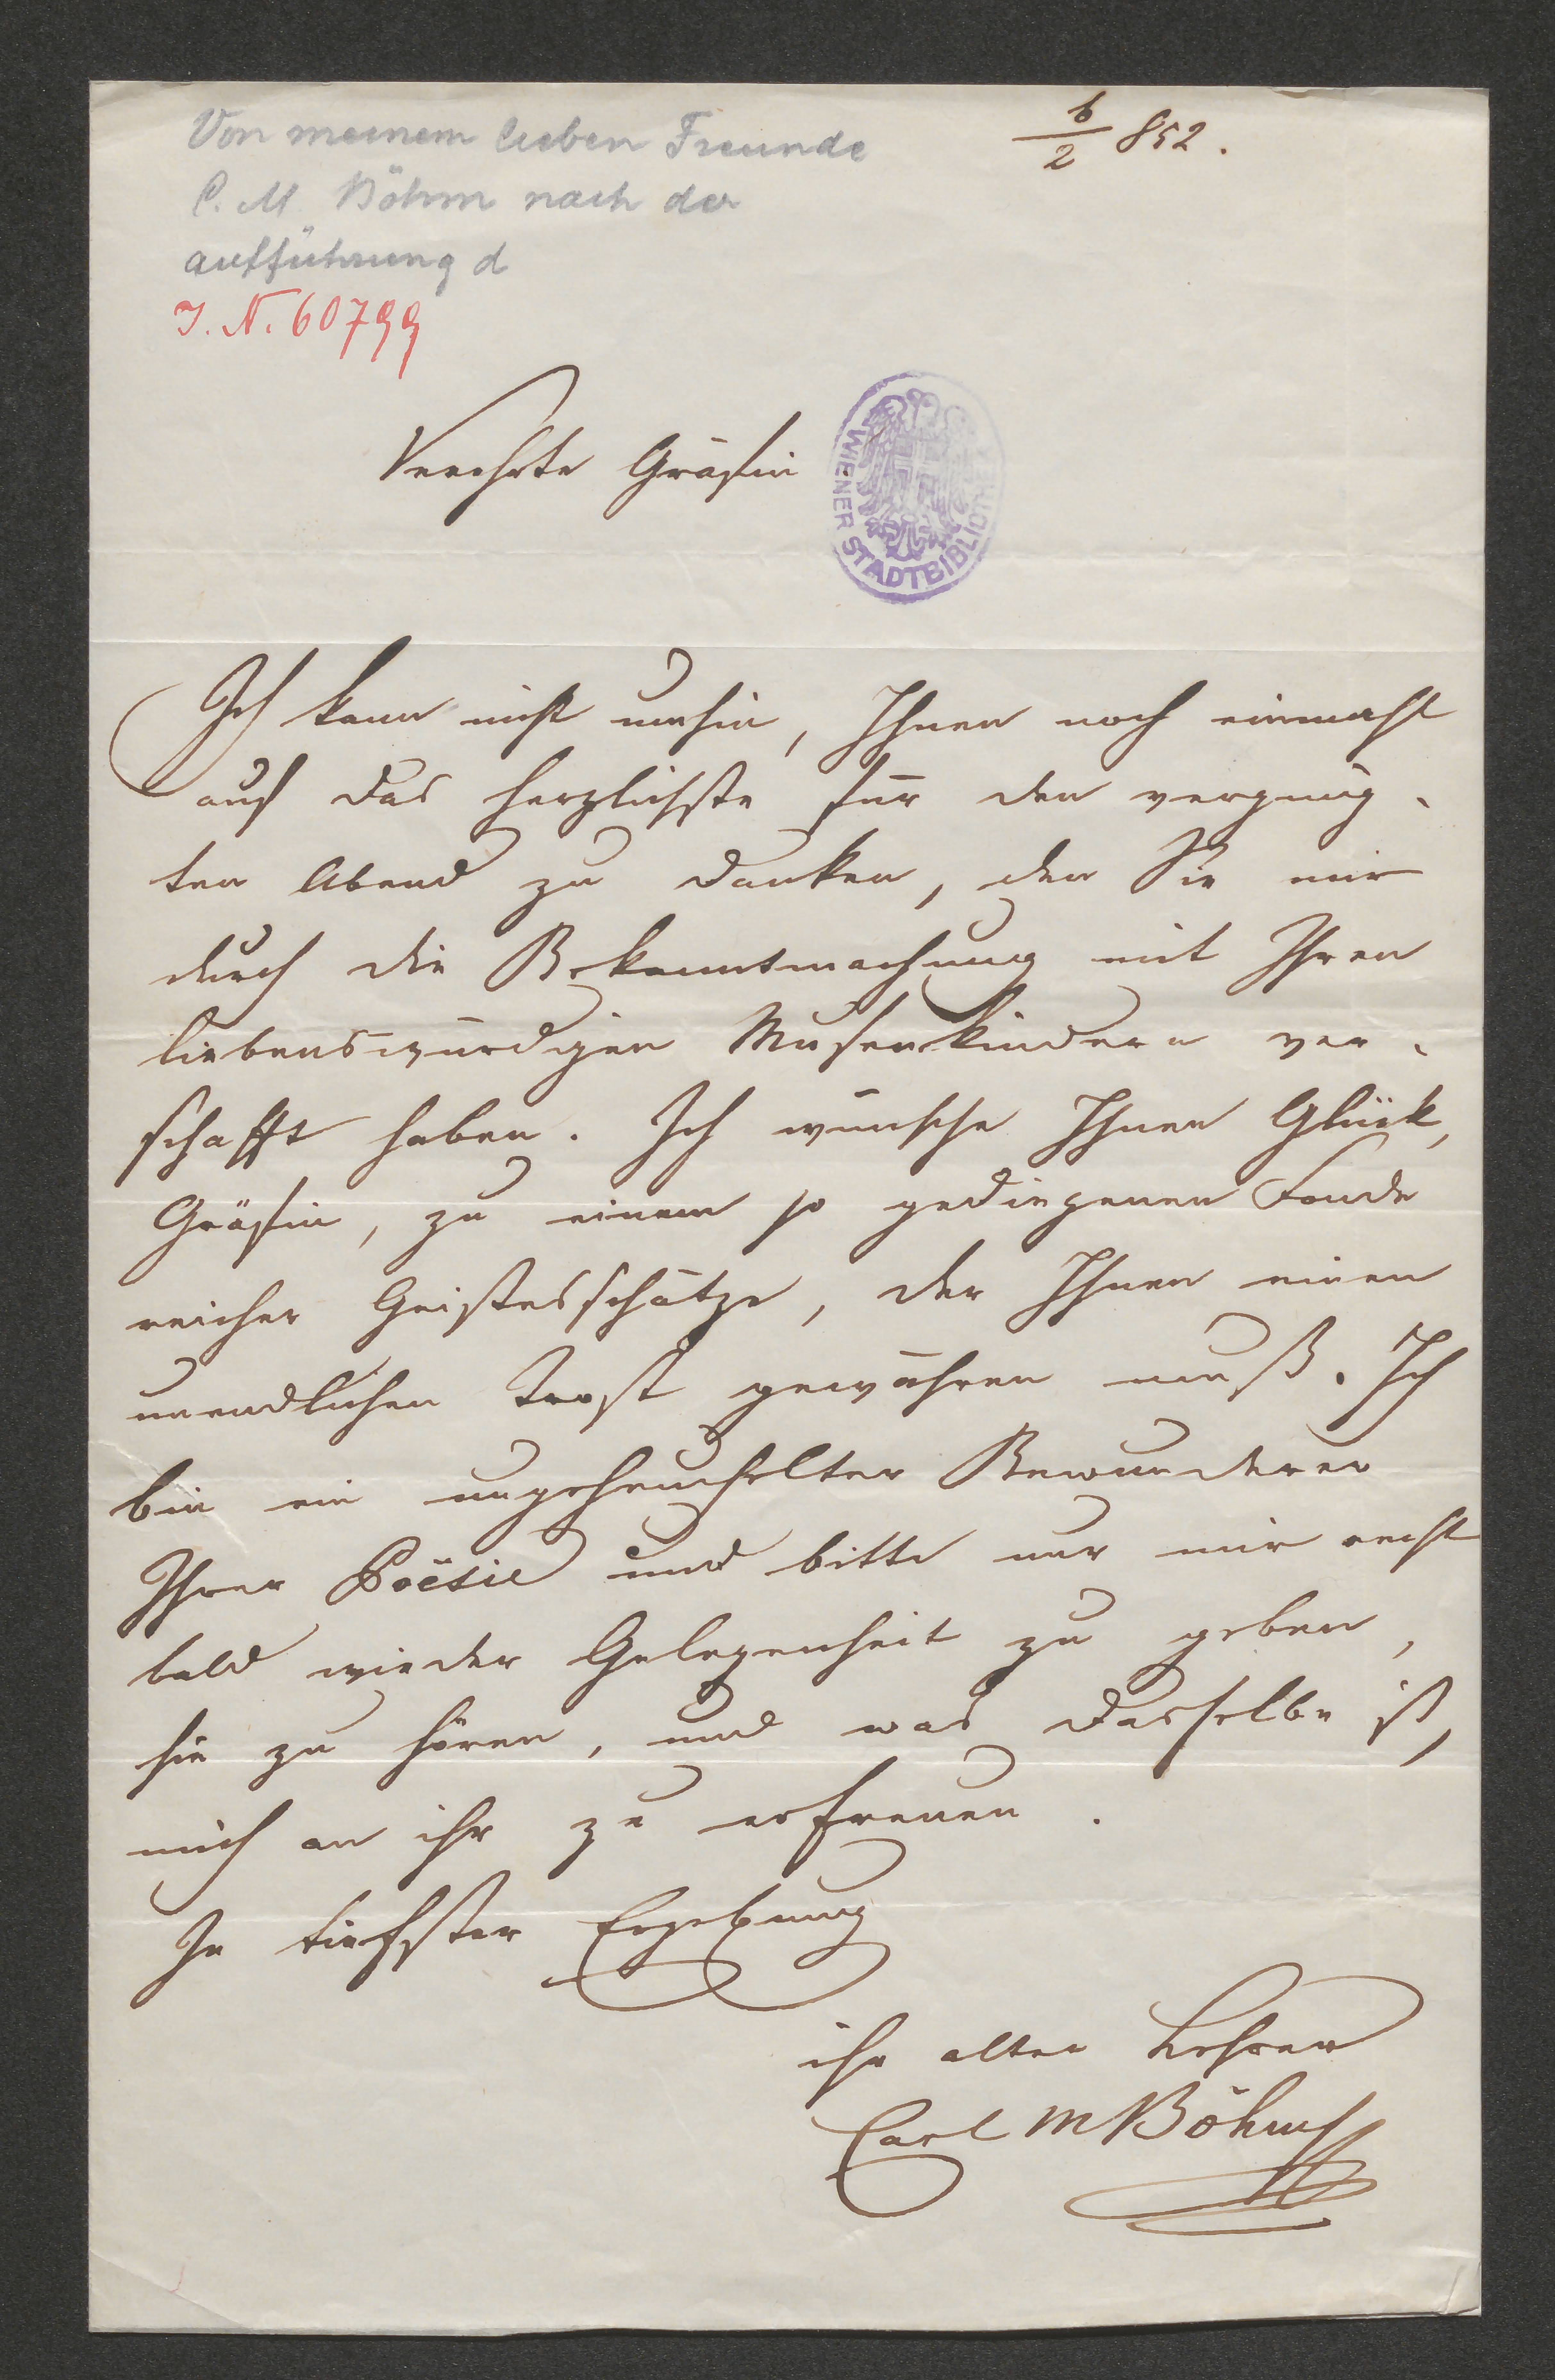 Von meinem lieben Freunde
C. M. Böhm nach der
aufführung d
I. N. 60799
6/2 852.
Verehrte Gräfin
WIENER STADTBIBLIOTHEK
Ich kann nicht umhin, Ihnen noch einmahl
auf das herzlichste für den vergnüg-
ten Abend zu danken, den Sie mir
durch die Bekanntmachung mit Ihren
liebenswürdigen Musenkindern ver-
schafft haben. Ich wünsche Ihnen Glück,
Gräfin, zu einem so gediegenen Fonde
reicher Geistesschätze, der Ihnen einen
unendlichen Trost gewähren muß. Ich
bin ein ungeheuchelter Bewunderer
Ihrer Poësie und bitte nur mir recht
bald wieder Gelegenheit zu geben,
sie zu hören, und was dasselbe ist,
mich an ihr zu erfreuen.
In tiefster Ergebung
ihr alter Lehrer
Carl M Böhm